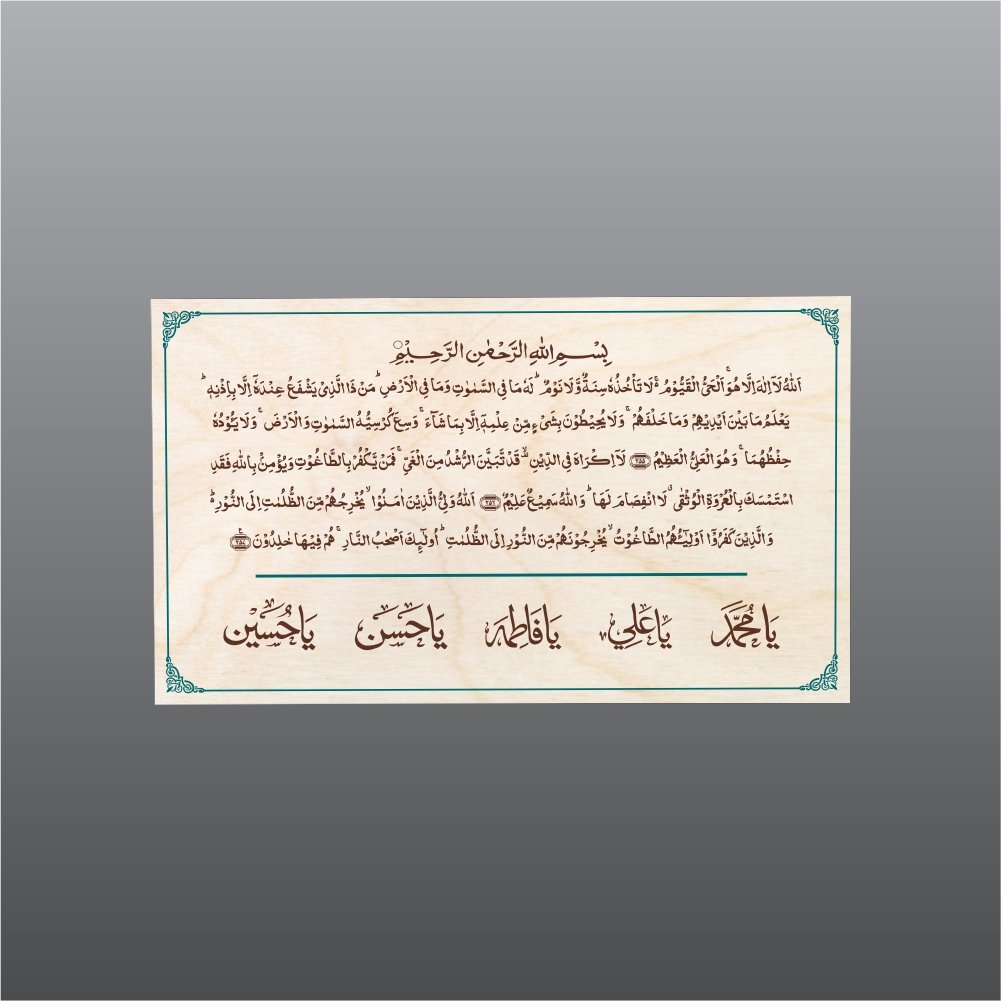 بِسْمِ اللهِ الرَّحْمٰنِ الرَّحِيْمِ
اَللهُ لَاۤ اِلٰهَ اِلَّا هُوَ ۚ اَلْحَىُّ الْقَيُّوْمُ ۚ لَا تَاْخُذُهٗ سِنَةٌ وَّ لَا نَوْمٌ ؕ لَهٗ مَا فِى السَّمٰوٰتِ وَ مَا فِى الْاَرْضِ ؕ مَنْ ذَا الَّذِىْ يَشْفَعُ عِنْدَهٗۤ اِلَّا بِاِذْنِهٖ ؕ
يَعْلَمُ مَا بَيْنَ اَيْدِيْهِمْ وَ مَا خَلْفَهُمْ ۚ وَ لَا يُحِيْطُوْنَ بِشَىْءٍ مِّنْ عِلْمِهٖۤ اِلَّا بِمَا شَآءَ ۚ وَسِعَ كُرْسِيُّهُ السَّمٰوٰتِ وَ الْاَرْضَ ۚ وَ لَا يَـُٔوْدُهٗ
حِفْظُهُمَا ۚ وَ هُوَ الْعَلِىُّ الْعَظِيْمُ ﴿۲۵۵﴾ لَاۤ اِكْرَاهَ فِى الدِّيْنِ ۙ قَدْ تَّبَيَّنَ الرُّشْدُ مِنَ الْغَىِّ ۚ فَمَنْ يَّكْفُرْ بِالطَّاغُوْتِ وَ يُؤْمِنْۢ بِاللهِ فَقَدِ
اسْتَمْسَكَ بِالْعُرْوَةِ الْوُثْقٰى ۗ لَا انْفِصَامَ لَهَا ؕ وَ اللهُ سَمِيْعٌ عَلِيْمٌ ﴿۲۵۶﴾ اَللهُ وَلِىُّ الَّذِيْنَ اٰمَنُوْا ۙ يُخْرِجُهُمْ مِّنَ الظُّلُمٰتِ اِلَى النُّوْرِ ؕ
وَ الَّذِيْنَ كَفَرُوْۤا اَوْلِيٰٓـُٔهُمُ الطَّاغُوْتُ ۙ يُخْرِجُوْنَهُمْ مِّنَ النُّوْرِ اِلَى الظُّلُمٰتِ ؕ اُولٰٓئِكَ اَصْحٰبُ النَّارِ ۚ هُمْ فِيْهَا خٰلِدُوْنَ ﴿۲۵۷﴾
يَا مُحَمَّد يَا عَلِي يَا فَاطِمَه يَا حَسَن يَا حُسَيْن